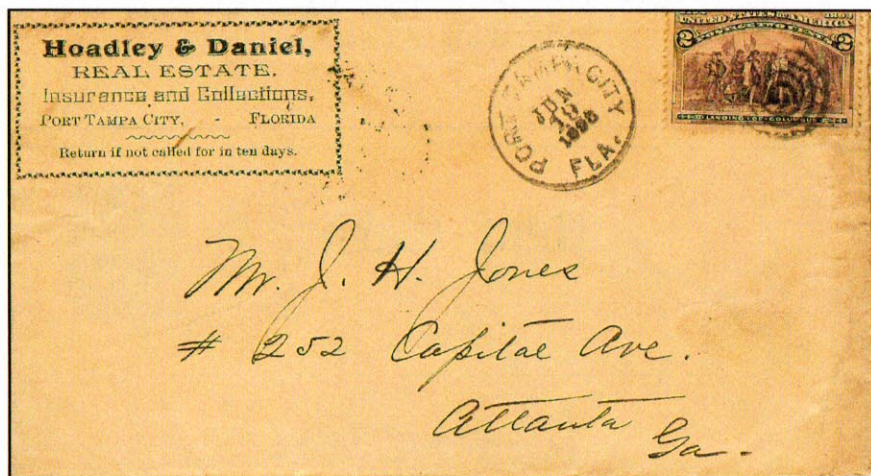 Hoadley & Daniel,
REAL ESTATE.
Insurance and Collections,
PORT TAMPA CITY, - FLORIDA
Return if not called for in ten days.
PORT TAMPA CITY
JUN
FLA.
UNITED STATES OF AMERICA
2 2
LANDING OF COLUMBUS
Mr. J. H. Jones
# 252 Capital Ave.
Atlanta
Ga.